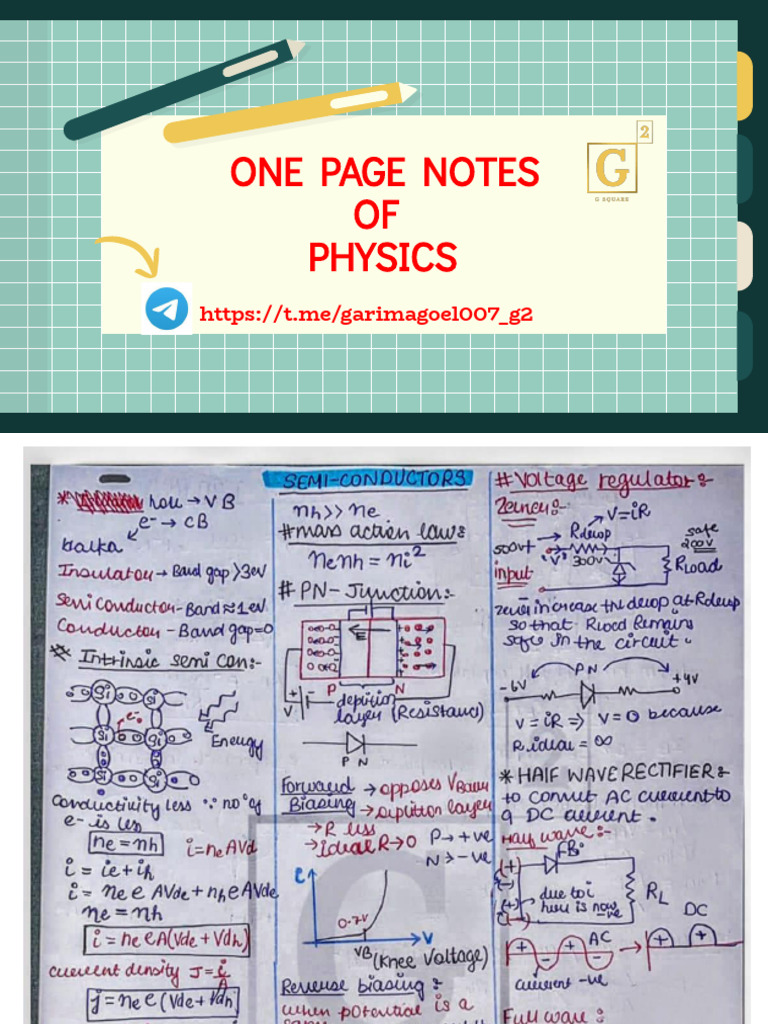 ONE PAGE NOTES
OF
PHYSICS
G
2
G SQUARE
https://t.me/garimagoel007_g2
SEMI-CONDUCTORS
hole → VB
e- → CB
Insulator → Band gap >3ev
Semiconductor - Band ≈ 1 ev
Conductor - Band gap=0
* Intrinsic semi con:-
Si Si
e-
Si Si
Si Si
Energy
Conductivity less ∵ no° of
e- is less
ne = nh
i = neAVd
i = ie + ih
i = ne e AVde + nh e AVde
ne = nh
i = ne e A(Vde + Vdh)
current density J = i/A
j = ne e (Vde + Vdh)
nh >> ne
# mass action law:
ne nh = ni²
# PN-Junction:-
E
P N
V
deplition
layer (Resistance)
P N
Forward
Biasing
→ opposes VBarr
→ diplition layer
→ R less
→ ideal R → 0
P → +ve
N → -ve
0.7V
V
VB (Knee Voltage)
Reverse biasing:
when potential is a
# Voltage regulator:
Zener:-
V=iR
Rdrop
safe
200V
500V
input
'V'
300V
RLoad
zener increase the drop at Rdrop
so that Rload Remains
safe in the circuit.
PN
-6V
+4V
V = iR ⇒ V = 0 because
R.ideal = ∞
* HALF WAVE RECTIFIER:
to convert AC current to
a DC current.
Half wave:-
FB
(+)
(-)
(+)
(-)
due to i
here is now
-ve
RL
DC
+ - + -
AC
→
+ +
current -ve
Full wave: